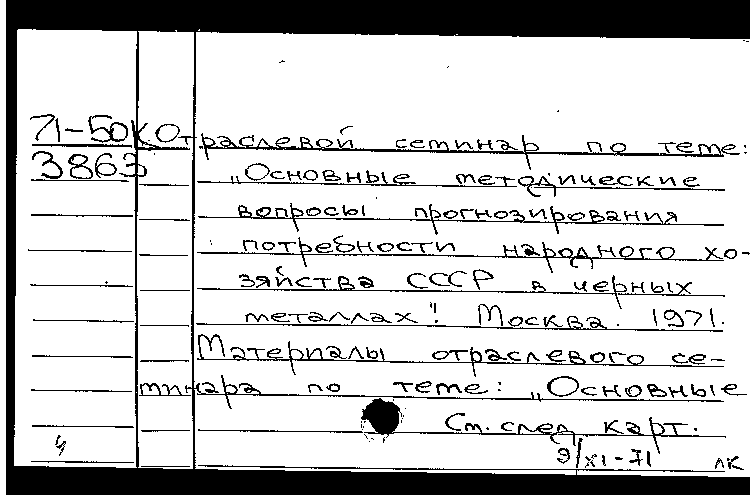 71-50К Отраслевой семинар по теме:
3863 „Основные методические
вопросы прогнозирования
потребности народного хо-
зяйства СССР в черных
металлах". Москва. 1971.
Материалы отраслевого се-
минара по теме: „Основные
См. след. карт.
4 9/XI-71 ЛК